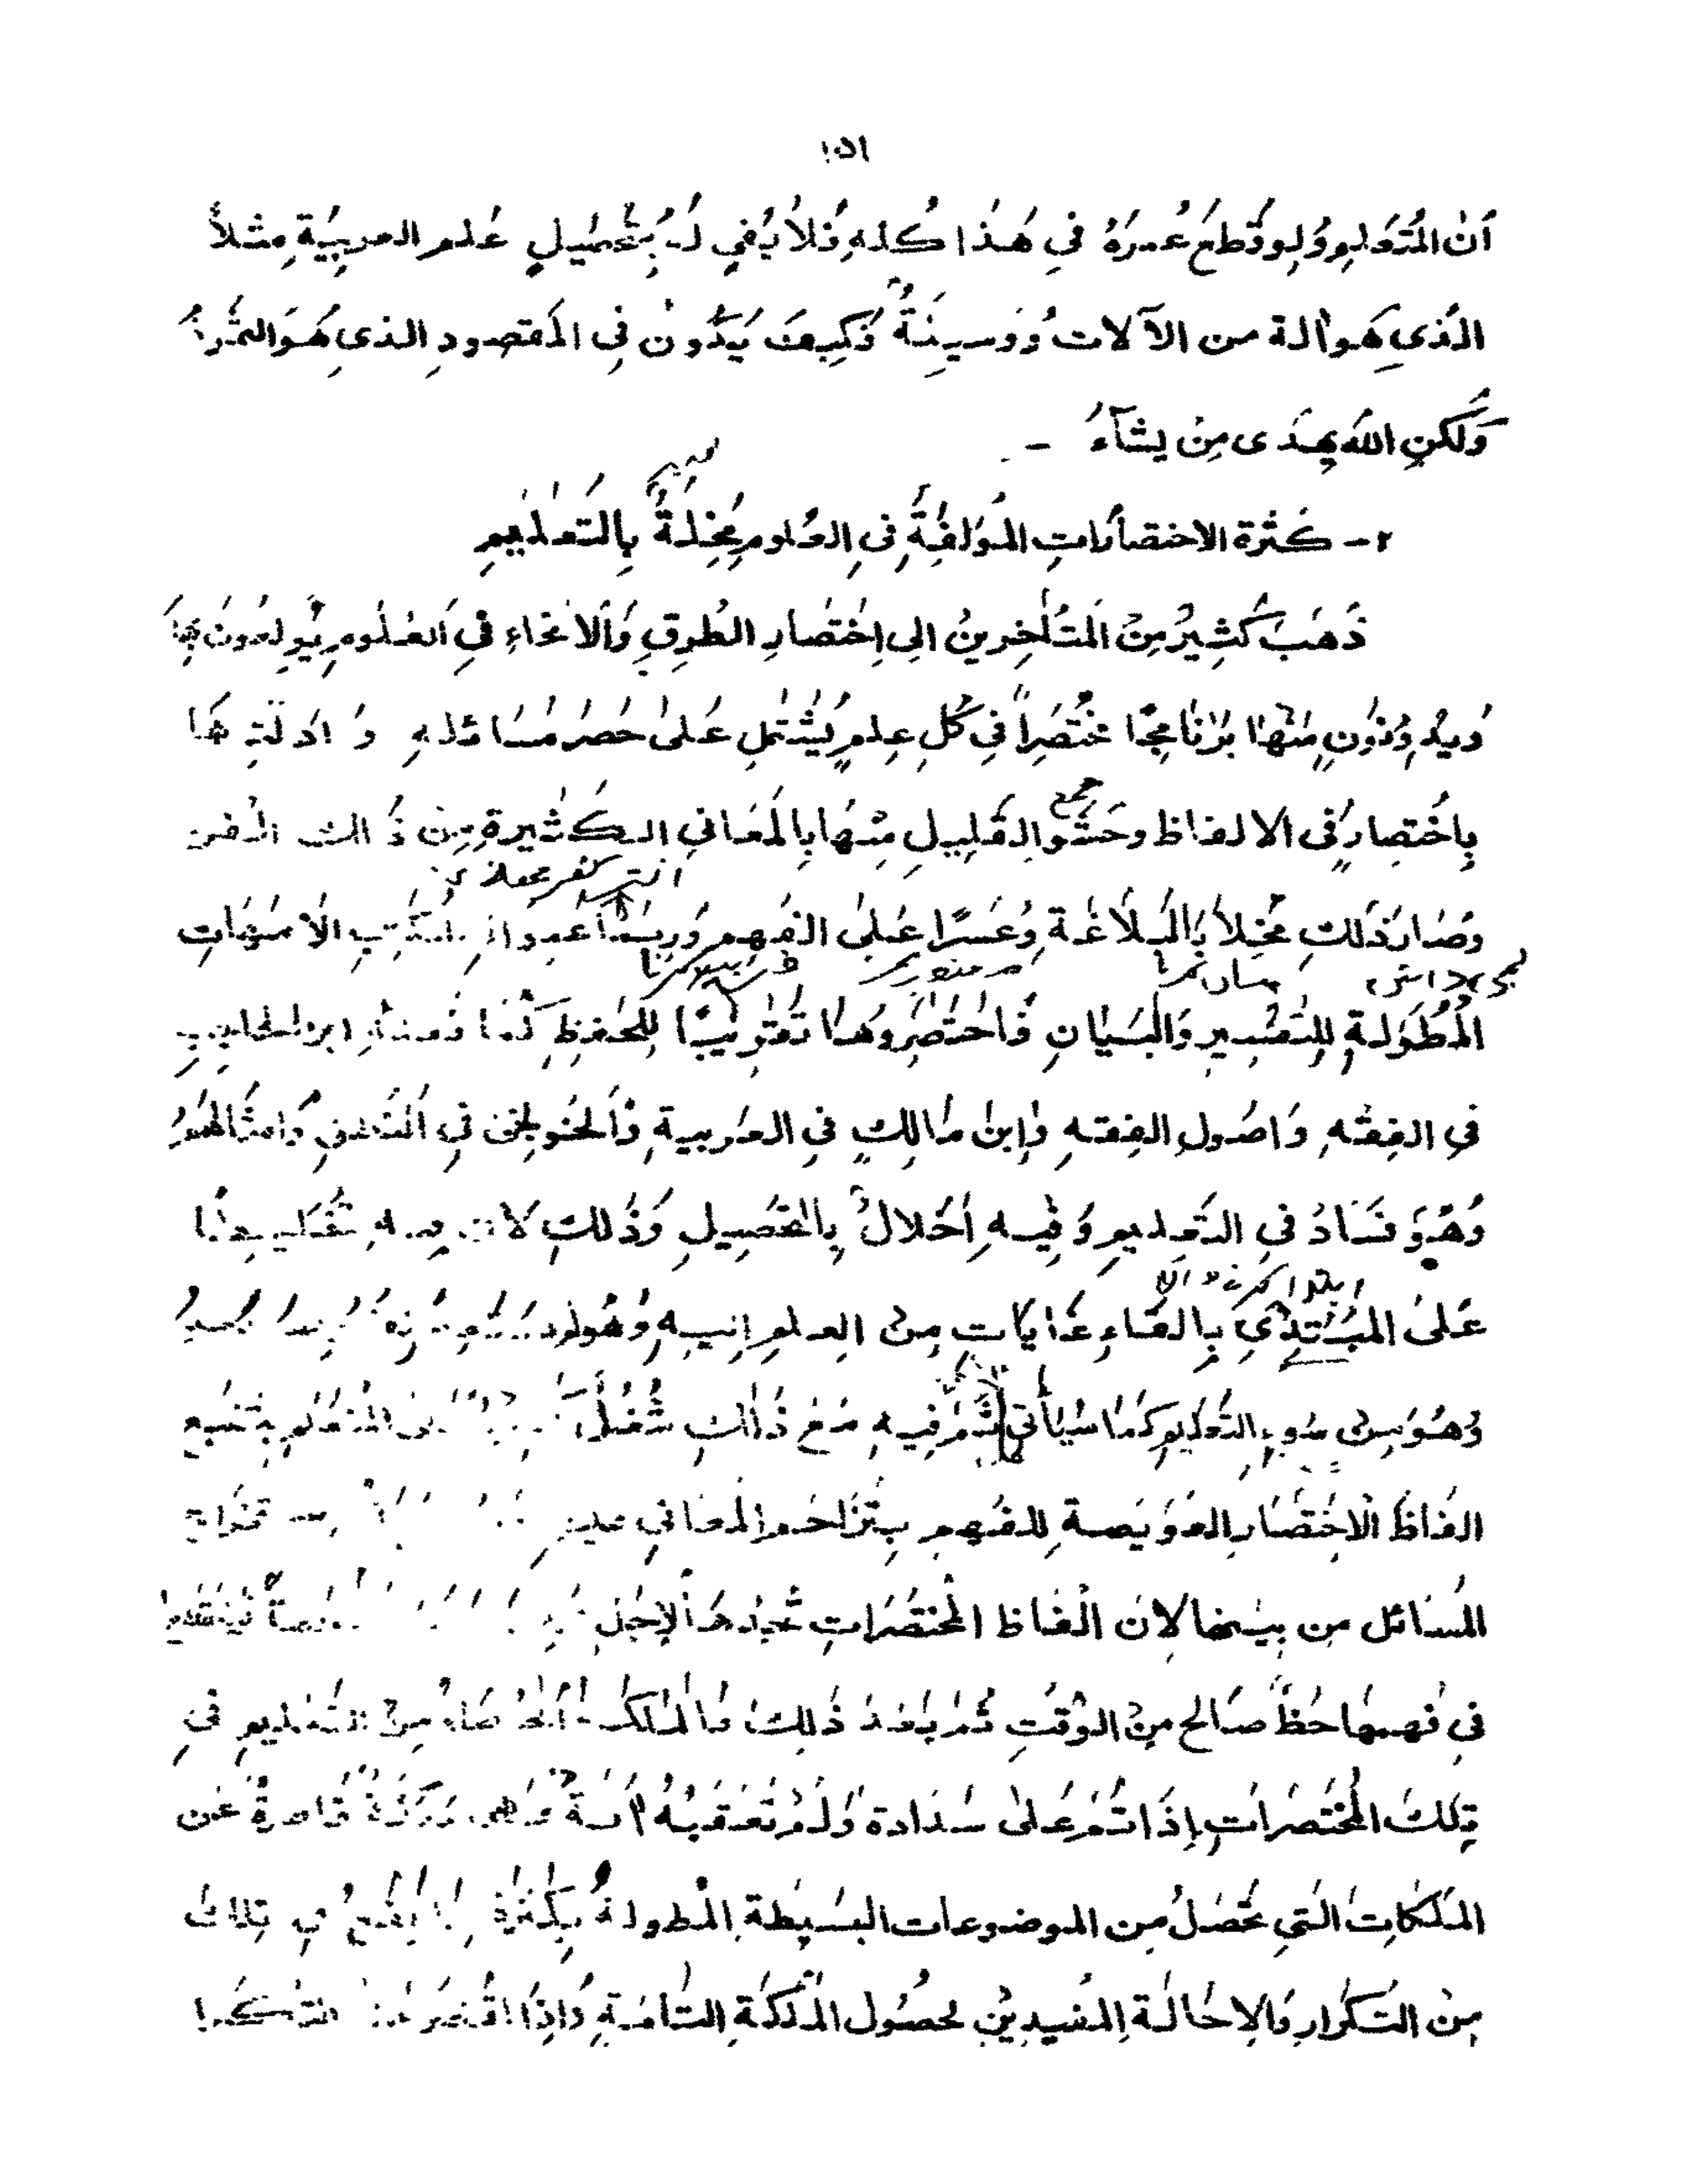 ١٥١
أن المتعلم ولو قطع عمره في هذا كله فلا يفي له بتحصيل علم العربية مثلاً
الذي هو آلة من الآلات ووسيلة فكيف يكون في المقصود الذي هو الثمرة
ولكن الله يهدي من يشآء -
٢ - كثرة الاختصارات المؤلفة في العلوم مخلة بالتعليم
ذهب كثير من المتأخرين الى اختصار الطرق والانحاء في العلوم يولعون بها
ويدونون منها برنامجا مختصراً في كل علم يشتمل على حصر مسائله و ادلتها
باختصار في الالفاظ وحشو القليل منها بالمعاني الكثيرة من ذالك الفن
وصار ذلك مخلا بالبلاغة وعسرا على الفهم وربما عمدوا الى الكتب الامهات
المطولة للتفسير والبيان فاختصروها تقريبا للحفظ كما فعله ابن الحاجب
في الفقه واصول الفقه وابن مالك في العربية والخونجي في المنطق وامثالهم
وهو فساد في التعليم وفيه اخلال بالتحصيل وذلك لان فيه تخليطا
على المبتدي بالقاء غايات من العلم اليه وهو لم يستعد
وهو من سوء التعليم كما سيأتي ثم فيه مع ذالك شغل المتعلم بتتبع
الفاظ الاختصار العويصة للفهم بتزاحم المعاني عليها
المسائل من بينها لان الفاظ المختصرات تجدها لاجل فينقطع
في فهمها حظ صالح من الوقت ثم بعد ذلك فالملكة الحاصلة من التعليم في
تلك المختصرات إذا تم على سدادة ولم تعقبه آفة فهي ملكة قاصرة عن
الملكات التي تحصل من الموضوعات البسيطة المطولة بكثرة ما يقع في تلك
من التكرار والاحالة المفيدين لحصول الملكة التامة واذا اقتصر